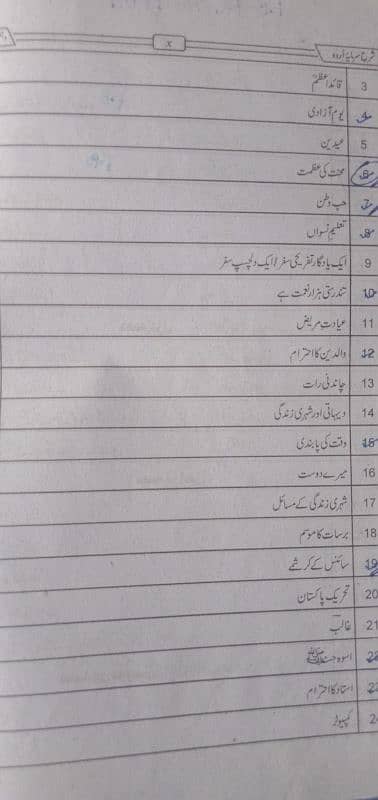 شرح سرمایۂ اردو
x
3 قائد اعظمؒ
4 یوم آزادی
5 عیدین
6 محنت کی عظمت
7 حب وطن
8 تعلیم نسواں
9 ایک یادگار تفریحی سفر / ایک دلچسپ سفر
10 تندرستی ہزار نعمت ہے
11 عیادت مریض
12 والدین کا احترام
13 چاندنی رات
14 دیہاتی اور شہری زندگی
15 وقت کی پابندی
16 میرے دوست
17 شہری زندگی کے مسائل
18 برسات کا موسم
19 سائنس کے کرشمے
20 تحریک پاکستان
21 غالب
22 اسوہ حسنہ ﷺ
23 استاد کا احترام
2 کمپیوٹر